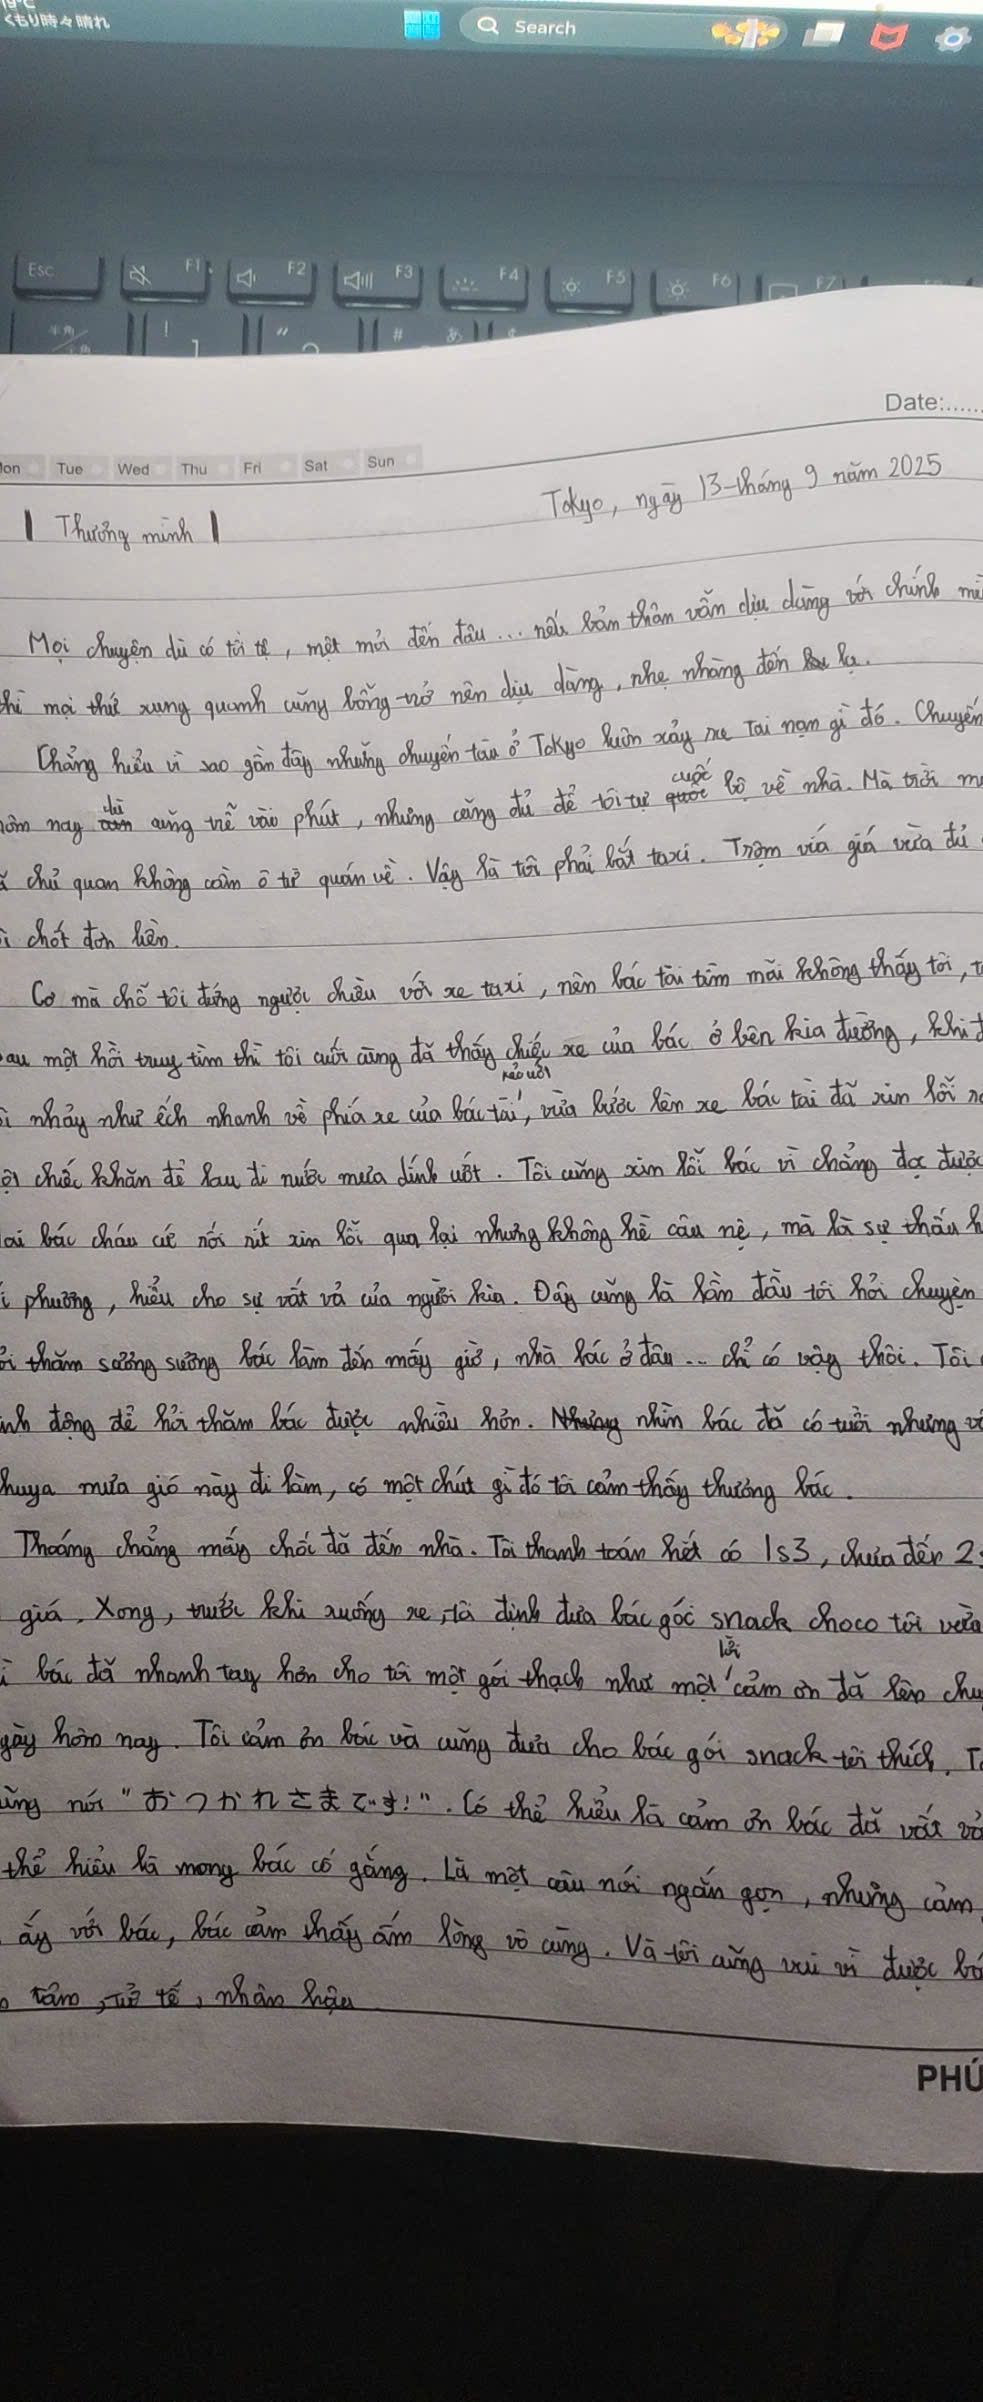 くもり時々晴れ
Search
Esc F1 F2 F3 F4 F5 F6 F7
半角/ ! " # あ
1
Date:......
Tue Wed Thu Fri Sat Sun
Tokyo, ngày 13 tháng 9 năm 2025
Thương mình
Mọi chuyện dù có tồi tệ, mệt mỏi đến đâu ... nếu bản thân vẫn dịu dàng với chính
thì mọi thứ xung quanh cũng bỗng trở nên dịu dàng, nhẹ nhàng đến lạ.
Chẳng hiểu vì sao gần đây những chuyến tàu ở Tokyo luôn xảy ra tai nạn gì đó. Chuyến
hôm nay dù cũng trễ vài phút, nhưng cũng đủ để tôi tự cuốc bộ về nhà. Mà trời
chủ quan không cầm ô từ quán về. Vậy là tôi phải bắt taxi. Trộm vía giá vừa đủ
chốt đơn liền.
Cơ mà chỗ tôi đứng ngược chiều với xe taxi, nên bác tài tìm mãi không thấy tôi,
một hồi truy tìm thì tôi cuối cùng đã thấy chiếc xe của bác ở bên kia đường, khi
nhảy như ếch nhanh về phía xe của bác tài, vừa bước lên xe bác tài đã xin lỗi
chiếc khăn để lau đi nước mưa dính ướt. Tôi cũng xin lỗi bác vì chẳng đọc được
bác cháu cứ nói nít xin lỗi qua lại nhưng không hề câu nệ, mà là sự thấu
phương, hiểu cho sự vất vả của người kia. Đây cũng là lần đầu tôi hỏi chuyện
thăm sương sương bác làm đến mấy giờ, nhà bác ở đâu ... chỉ có vậy thôi. Tôi
động để hỏi thăm bác được nhiều hơn. Nhưng nhìn bác đã có tuổi nhưng
khuya mưa gió này đi làm, có một chút gì đó tôi cảm thấy thương bác.
Thoáng chẳng mấy chốc đã đến nhà. Tôi thanh toán hết có 1s3, chưa đến 2
giá. Xong, trước khi xuống xe, tôi định đưa bác gói snack choco tôi vừa
bác đã nhanh tay hơn cho tôi một gói thạch như một lời cảm ơn đã lên
hôm nay. Tôi cảm ơn bác và cũng đưa cho bác gói snack tôi thích.
nói "おつかれさまです!". Có thể hiểu là cảm ơn bác đã vất vả
thể hiểu là mong bác cố gắng. Là một câu nói ngắn gọn, nhưng cảm
ấy với bác, bác cảm thấy ấm lòng vô cùng. Và tôi cũng vui vì được
tâm, tử tế, nhân hậu
PHÚ